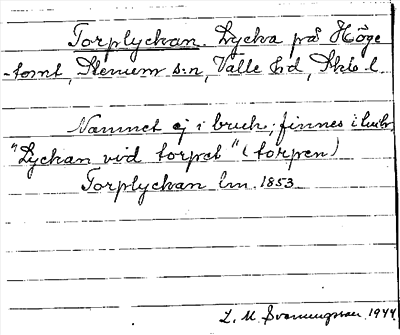 Torplyckan. Lycka på Höge
-tomt, Stenum s:n, Valle hd, Skbs l.
Namnet ej i bruk; finnes i
"Lyckan vid torpet" (torpen)
Torplyckan lm. 1853
L. M. Svanungsson 1944